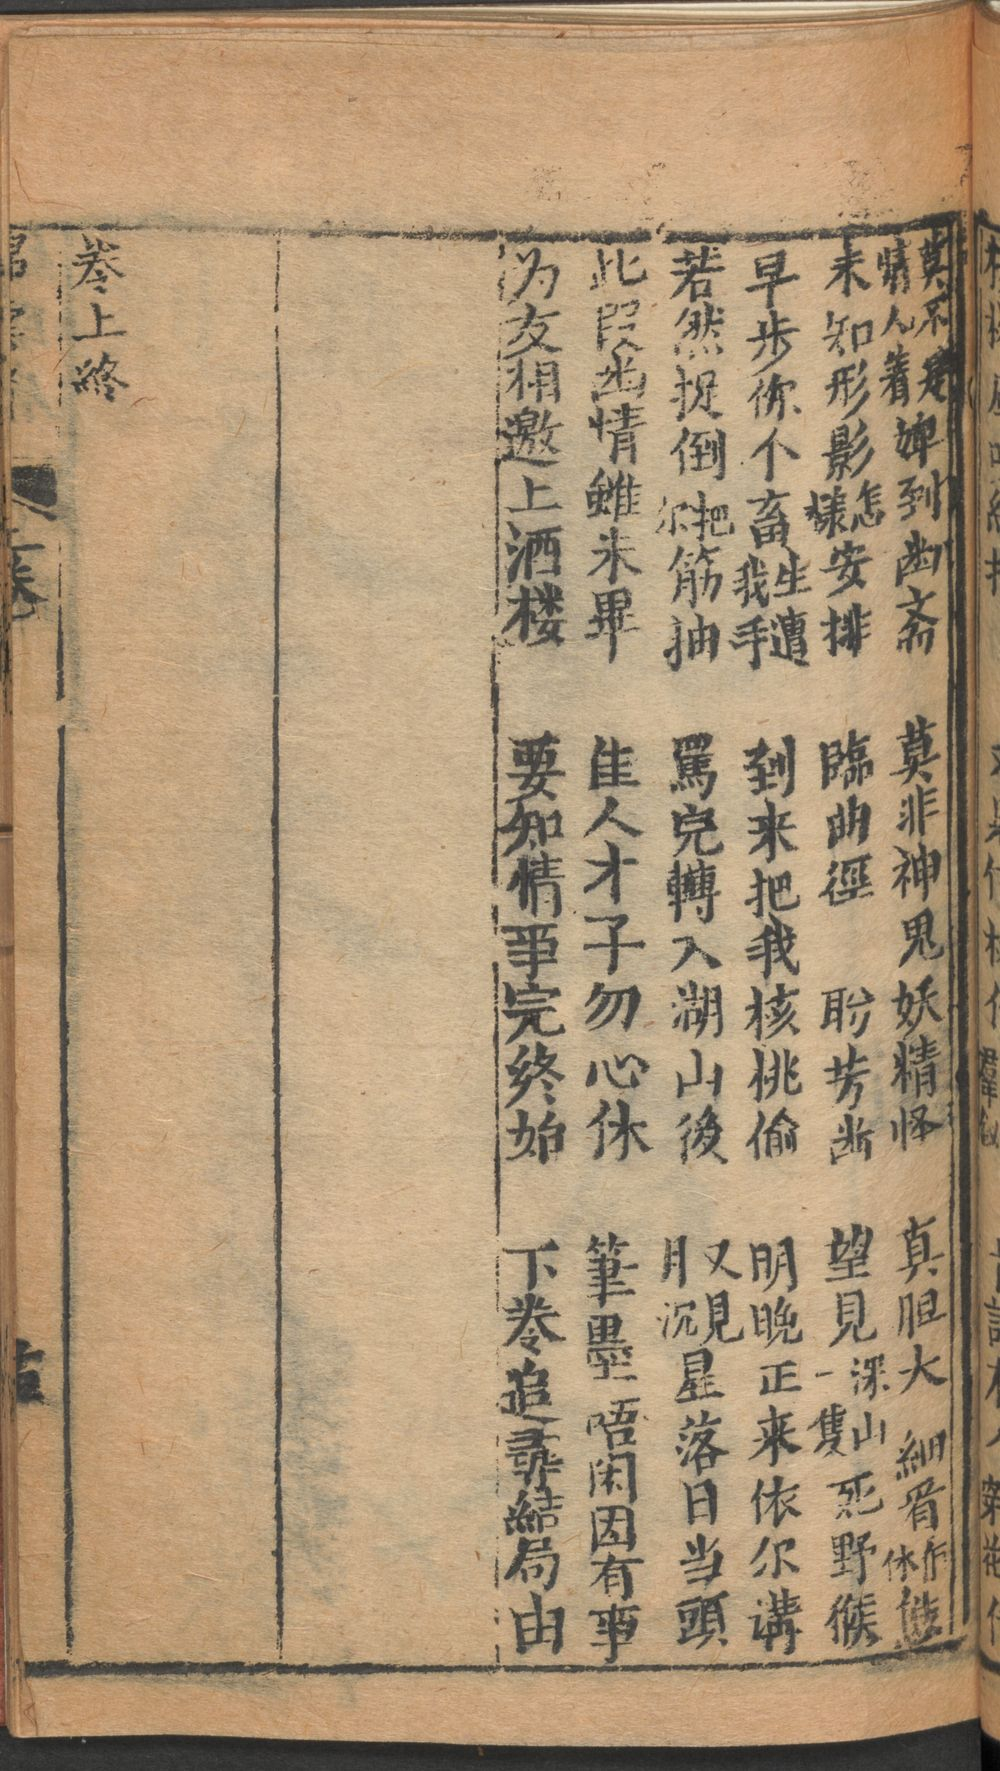 莫不是情人着婢到幽斋　莫非神鬼妖精怪　真胆大　細看休作造
未知形影怎樣安排　臨曲徑　聆芳幽　望見深山一隻死野猴
早步你个畜生遭我手　到来把我核桃偷　明晚正来依尔講
若然捉倒把尔筋抽　罵完轉入湖山後　又見月沉星落日当頭
此段幽情雖未畢　佳人才子勿心休　筆墨唔闲因有事
为友相邀上洒楼　要知情事完终始　下卷追尋結局由
卷上終